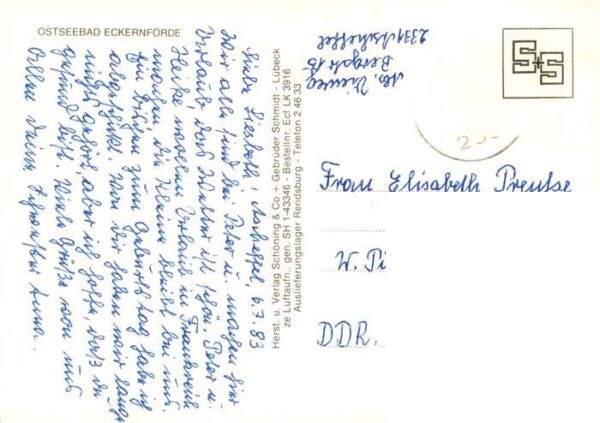 OSTSEEBAD ECKERNFÖRDE
Liebe Liesbeth! Ascheffel, 6.7.83
Wir alle sind bei Peter u. machen hier
Urlaub, das Wetter ist schön. Peter u.
Heike wollen Urlaub in Frankreich
machen, die Kleine bleibt bei uns.
Ein bißchen zum Geburtstag habe ich
abgeschickt. Von Dir haben wir lange
nichts gehört, aber ich hoffe, daß du
gesund bist. Viele Grüße von uns
Allen Deine Schwester Anna.
Herst. u. Verlag Schöning & Co + Gebrüder Schmidt - Lübeck
ze Luftaufn., gen. SH 1-43346 - Bestellnr. Ecf LK 3916
Auslieferungslager Rendsburg - Telefon 2 46 33
Abs. Vieweg
Bergstr. 15
2331 Ascheffel
S+S
25-
Frau Elisabeth Preuße
W. Pi
DDR.